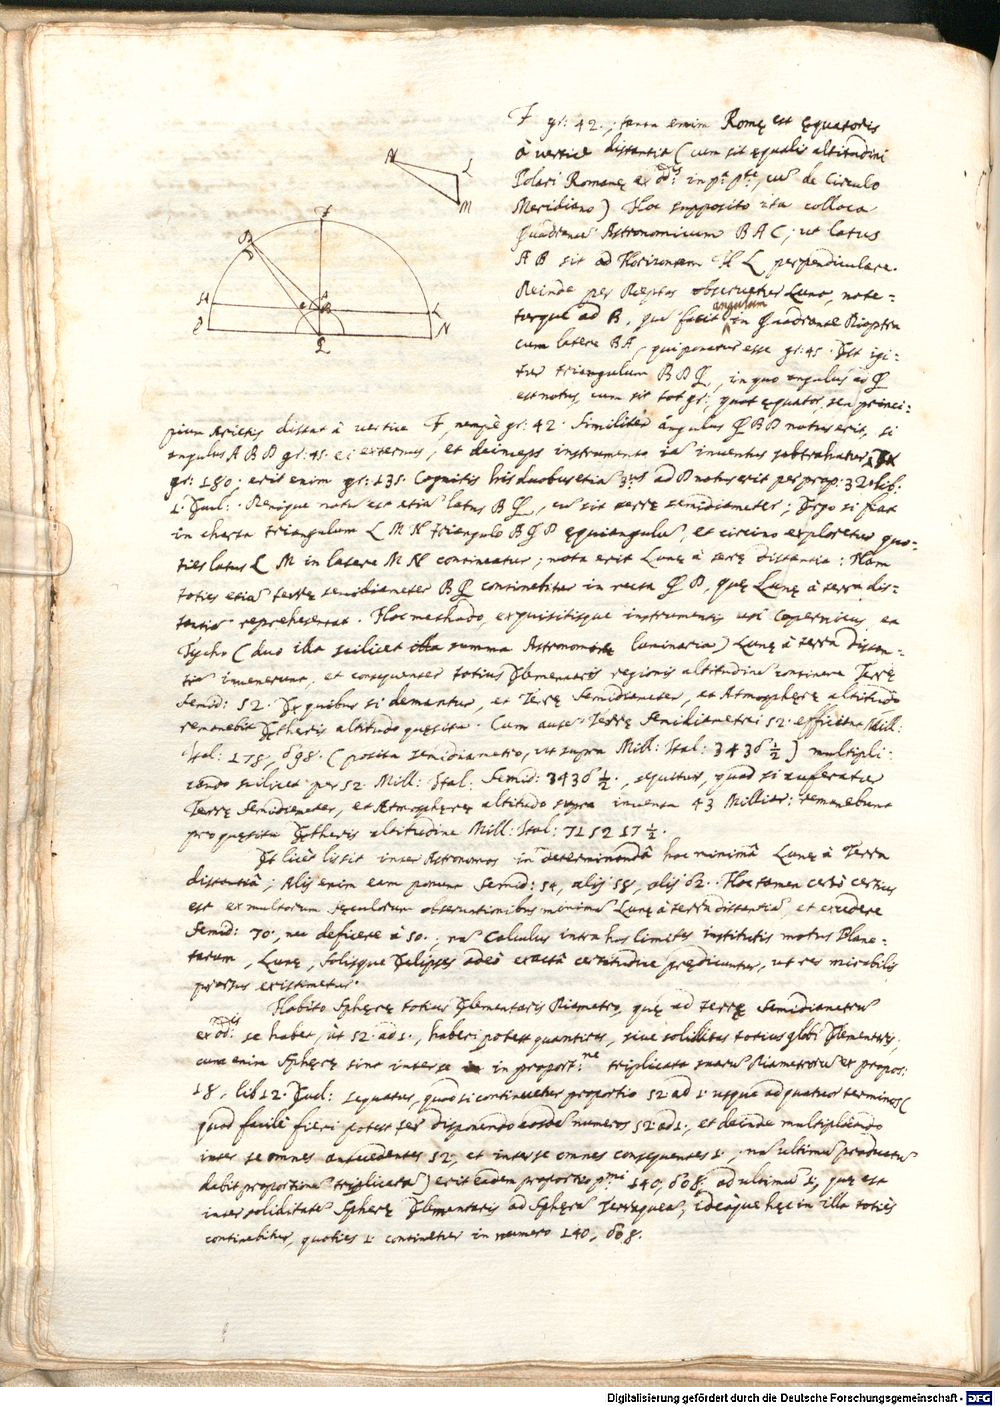 F gr: 42., tanta enim Romę est ęquatoris
à vertice distantia (cum sit ęqualis altitudini
Polari Romanę ex dictis in pᵃ pᵗᵉ, de Circulo
Meridiano) Hoc supposito ita colloca
Quadrantem Astronomicum BAC, ut latus
AB sit ad Horizontem HL perpendiculare.
Deinde per observetur Luna, note-
turque ad B, qui facit angulum in Quadrante Dioptra
cum latere BA, qui ponatur esse gr: 45. Est igi-
tur triangulum BDQ, in quo angulus ad Q
est notus, cum sit tot gr:, quot ęquator, seu princi-
pium Arietis distat à vertice F, nempè gr: 42. Similiter angulus QBD notus erit, si
angulus ABD gr: 45. ei externus, et deinceps instrumento iã inventus subtrahatur ex
gr: 180; erit enim gr: 135. Cognitis his duobus etiã 3ᵘˢ ad D notus erit per prop: 32 lib:
1. Eucl:. Denique notũ est etiã latus BQ, cũ sit terrę semidiameter; Ergo si fiat
in charta triangulum LMN triangulo BQD ęquiangulũ, et circino exploretur quo-
ties latus LM in latere MN contineatur; nota erit Lunę à terrę distantia: Nam
toties etiã terrę semidiameter BQ continebitur in recta QD, quę Lunę à terra dis-
tantiã repręsentat. Hac methodo, exquisitisque instrumentis usi Copernicus, et
Tycho (duo illa scilicet illa summa Astronomorũ luminaria) Lunę à terra distan-
tiã invenerunt, et consequenter totius Elementaris regionis altitudinẽ continere Terrę
Semid: 52. Ex quibus si demantur, et Terrę Semidiameter, et Atmospherę altitudo
remanebit Ętheris altitudo quęsita. Cum autẽ Terrę Semidiametri 52 efficiant Mill:
Ital: 178,698. (posita semidiametro, ut supra Mill: Ital: 3436 ½) multipli-
cando scilicet per 52 Mill: Ital: Semid: 3436 ½., sequitur, quod si auferatur
Terrę Semidiameter, et Atmospherę altitudo supra inventa 43 Milliar: remanebunt
pro quęsita Ętheris altitudine Mill: Ital: 715217 ½.
Et licèt lis sit inter Astronomos in determinandã hac minimã Lunę à Terra
distantiã; Alij enim eam ponunt Semid: 54, alij 58, alij 62. Hoc tamen certò certius
est ex multorum sęculorum observationibus minimã Lunę à terra distantiã, et excedere
Semid: 70., nec deficere à 50., nã Calculus intra hos limites institutis motus Plane-
tarum, Lunę, Solisque Eclipses adeò exactã certitudine prędicuntur, ut res mirabilis
prorsus existimetur.
Habito Spherę totius Elementaris Diametro, quę ad terrę Semidiametrũ
ex dictis se habet, ut 52. ad 1., haberi potest quantitas, sive soliditas totius globi Elementaris;
cum enim Spherę sint inter se in proportⁿᵉ triplicata suarũ Diametrorũ ex propos:
18, lib 12. Eucl: sequatur, quod si continuetur proportio 52 ad 1 usque ad quatuor terminos (
quod facilè fieri potest ter disponendo eosdẽ numeros 52 ad 1., et deinde multiplicando
inter se omnes antecedentes 52, et inter se omnes consequentes 1., nã ultimus productus
dabit proportionẽ triplicatã) erit eadem proportio pʳⁱᵐⁱ 140,608, ad ultimũ 1, quę est
inter soliditatẽ Spherę Elementaris ad Spherã Terraqueã, ideòque hęc in illa toties
continebitur, quoties 1 continetur in numero 140,608.
N
L
M
F
B
H
D
A
C
L
N
Q
Digitalisierung gefördert durch die Deutsche Forschungsgemeinschaft - DFG